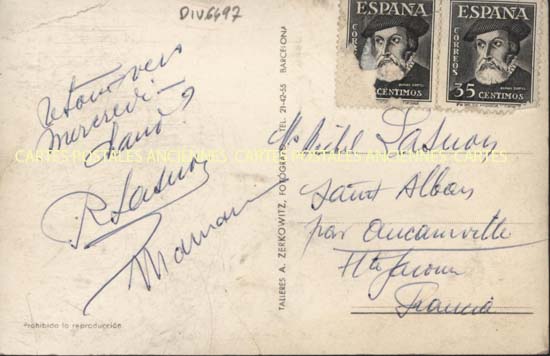 DIV6497
retour vers
mercredi
R Lasmon
Maman
Prohibida la reproducción
TALLERES A. ZERKOWITZ, FOTOGRAFO TEL. 21-42-55 BARCELONA
ESPAÑA
CORREOS
CENTIMOS
ESPAÑA
CORREOS
HERNAN CORTES
35 CENTIMOS
CARTES POSTALES ANCIENNES CARTES POSTALES ANCIENNES CARTES POSTALES ANCIENNES
Saint Alban
par Aucamville
Hte Garonne
Francia